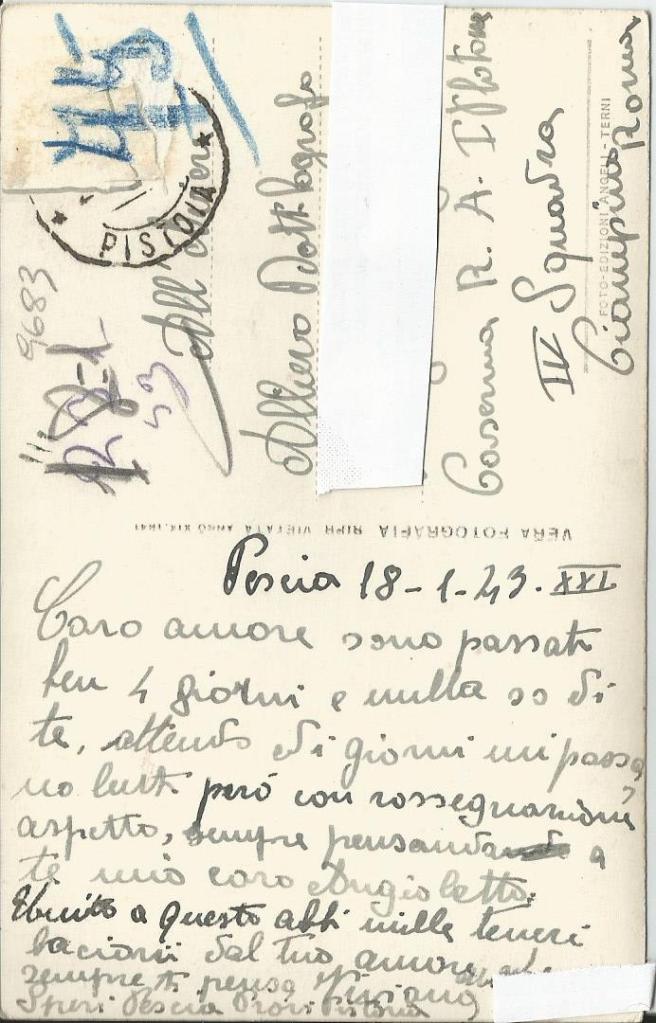 Pescia 18-1-43. XXI
Caro amore sono passati
ben 4 giorni e nulla so di
te, attendo di giorni mi passa
no lenti però con rossegnazione
aspetto, sempre pensando a
te mio caro Angioletto.
Unito a questo abbi mille teneri
bacioni dal tuo amore che
sempre ti pensa
Pescia Prov. Pistoia
VERA FOTOGRAFIA RIPR. VIETATA ANNO XIX. 1941
45
PISTOIA
9683
All'
Allievo
Caserma R. A. I Plotone
IV Squadra
Ciampino Roma
FOTO-EDIZIONI ANGELI - TERNI